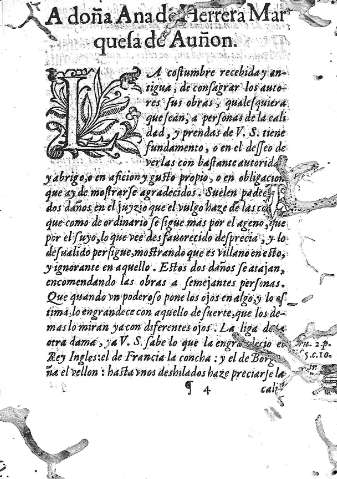 A doña Ana de Herrera Mar
quesa de Auñon.
LA costumbre recebida y an-
tigua, de consagrar los auto-
res sus obras, qualesquiera
que sean, a personas de la cali
dad, y prendas de V. S. tiene
fundamento, o en el desseo de
verlas con bastante autorida
y abrigo, o en aficion y gusto propio, o en obligacion
que ay de mostrarse agradecidos. Suelen padecer
dos daños, en el juyzio que el vulgo haze de las cosas,
que como de ordinario se sigue mas por el ageno, que
por el suyo, lo que vee desfauorecido desprecia, y lo
desualido persigue, mostrando que es villano en esto,
y ignorante en aquello. Estos dos daños se atajan,
encomendando las obras a semejantes personas.
Que quando vn poderoso pone los ojos en algo, y lo es
tima, lo engrandece con aquello de suerte, que los de-
mas lo miran ya con diferentes ojos. La liga de la
otra dama, ya V. S. sabe lo que la engrandecio el
Rey Ingles: el de Francia la concha: y el de Borgo
ña el vellon: hasta vnos deshilados haze preciarse la
¶ 4 cali